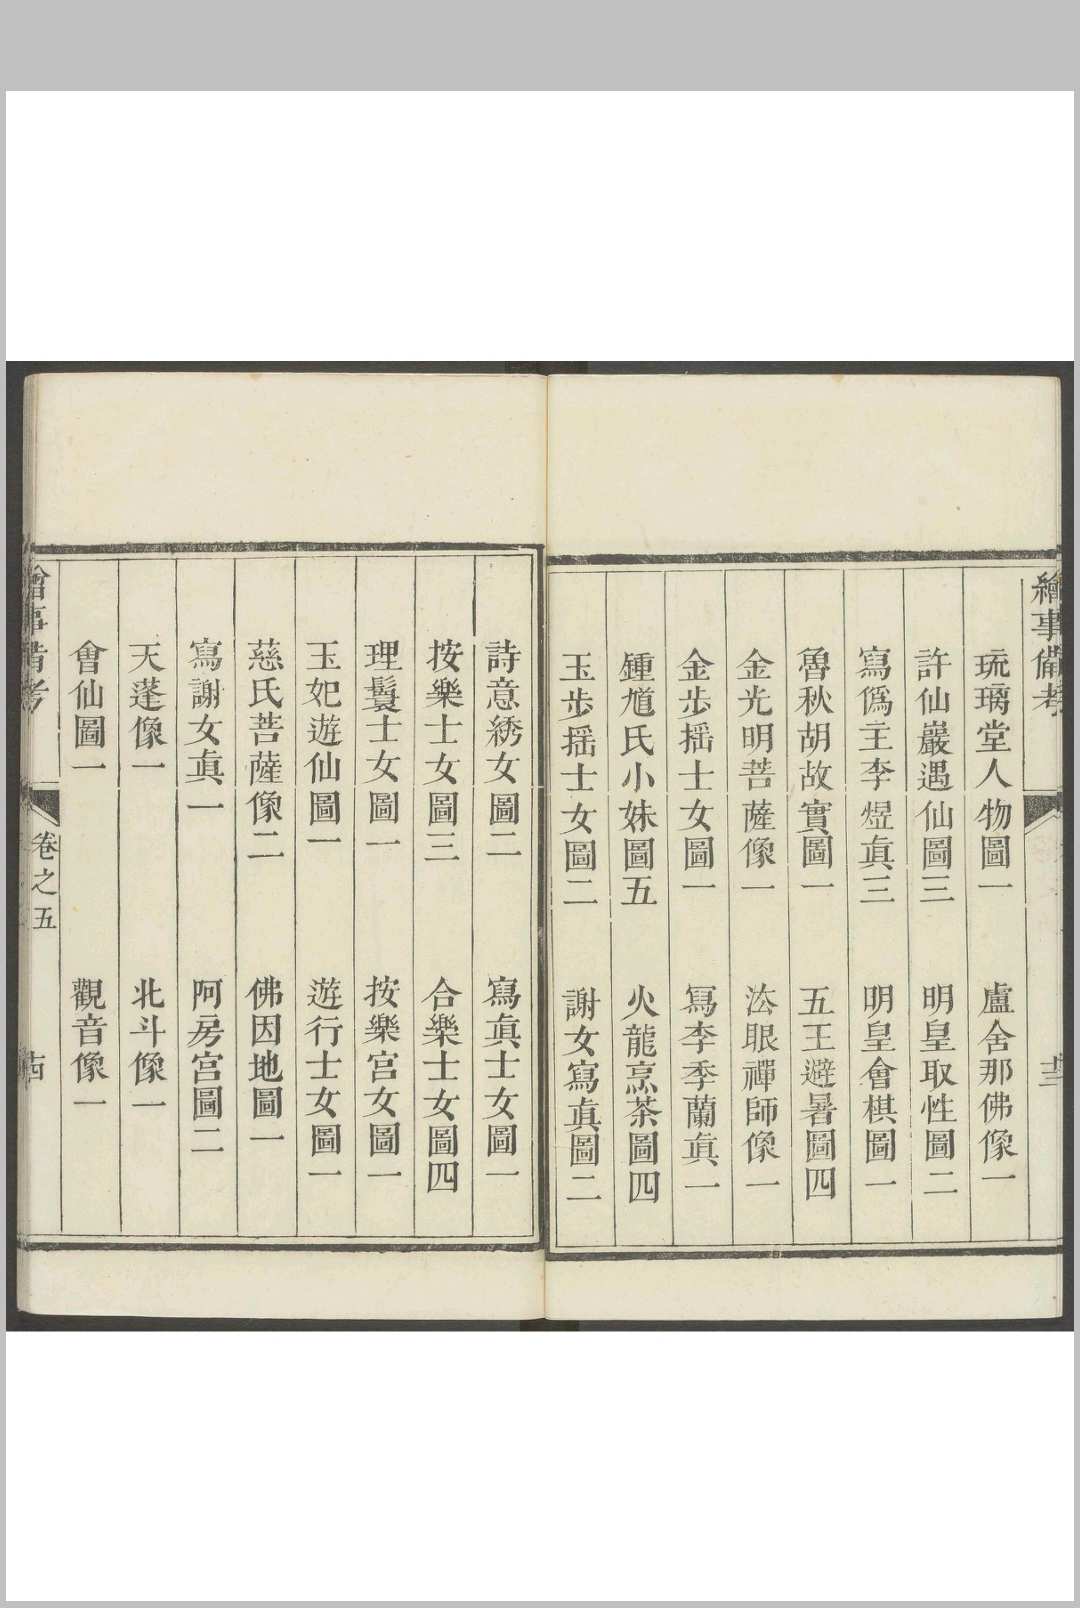 繪事備考
琉璃堂人物圖一　盧舍那佛像一
許仙巖遇仙圖三　明皇取性圖二
寫偽主李煜眞三　明皇會棋圖一
魯秋胡故實圖一　五王避暑圖四
金光明菩薩像一　法眼禪師像一
金步搖士女圖一　寫李季蘭眞一
鍾馗氏小妹圖五　火龍烹茶圖四
玉步搖士女圖二　謝女寫眞圖二
詩意綉女圖二　寫眞士女圖一
按樂士女圖三　合樂士女圖四
理鬟士女圖一　按樂宮女圖一
玉妃遊仙圖一　遊行士女圖一
慈氏菩薩像二　佛因地圖一
寫謝女眞一　阿房宮圖二
天蓬像一　北斗像一
會仙圖一　觀音像一
繪事備考
卷之五